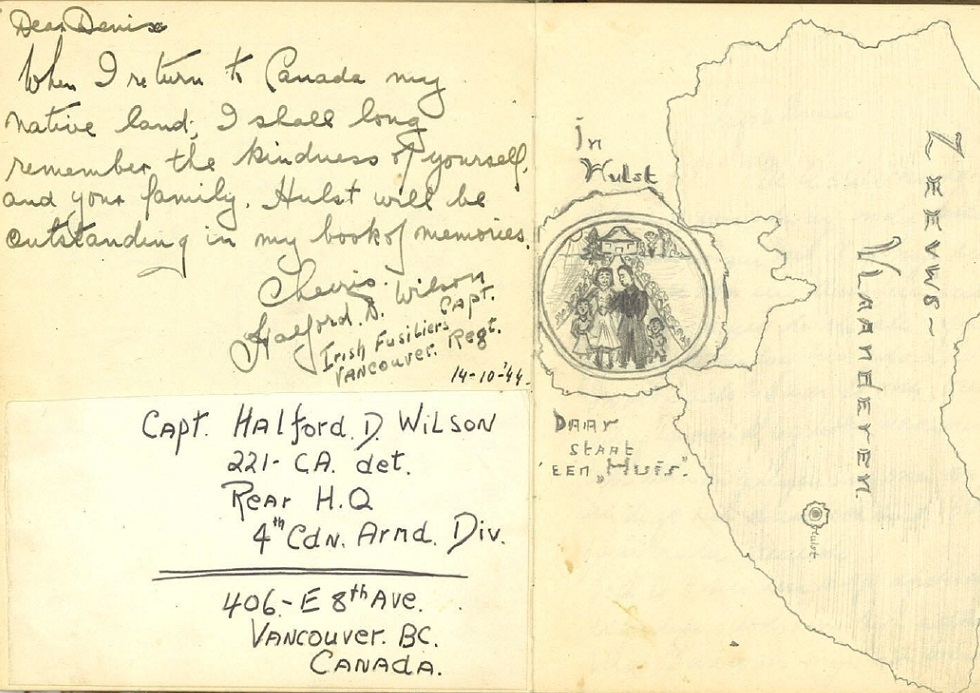 Dear Denise
When I return to Canada my
native land, I shall long
remember the kindness of yourself,
and your family. Hulst will be
outstanding in my book of memories.
Cheerio.
Halford. D. Wilson
Capt.
Irish Fusiliers
Vancouver. Regt.
14-10-'44.
Capt. Halford. D. Wilson
221- CA. det.
Rear H.Q
4th Cdn. Armd. Div.
406.- E 8th Ave.
Vancouver. BC.
Canada.
in
Hulst
Daar
staat
een „Huis”.
Zeeuws~
Vlaanderen.
Hulst.